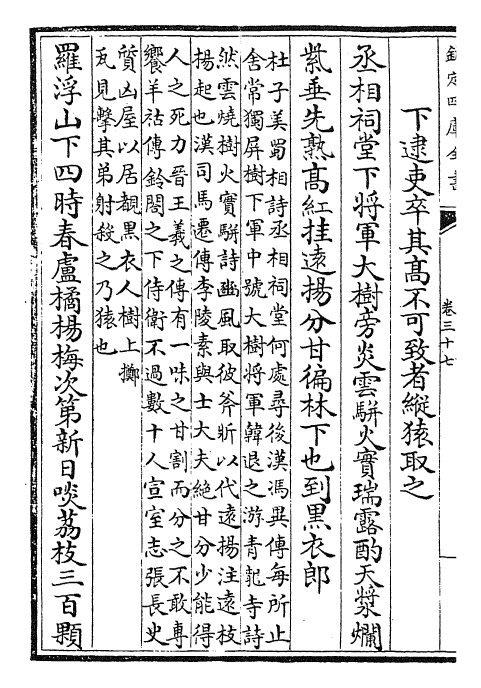 欽定四庫全書
卷三十七
下逮吏卒其髙不可致者縱猿取之
丞相祠堂下將軍大樹旁炎雲駢火實瑞露酌天漿爛
紫垂先熟髙紅挂遠揚分甘徧林下也到黑衣郎
杜子美蜀相詩丞相祠堂何處尋後漢馮異傳每所止
舍常獨屏樹下軍中號大樹將軍韓退之游青龍寺詩
然雲燒樹火實駢詩豳風取彼斧斨以代遠揚注遠枝
揚起也漢司馬遷傳李陵素與士大夫絶甘分少能得
人之死力晉王羲之傳有一味之甘割而分之不敢專
饗羊祜傳鈴閤之下侍衛不過數十人宣室志張長史
質凶屋以居覩黑衣人樹上擲
瓦見擊其弟射殺之乃猿也
羅浮山下四時春盧橘楊梅次第新日啖荔枝三百顆